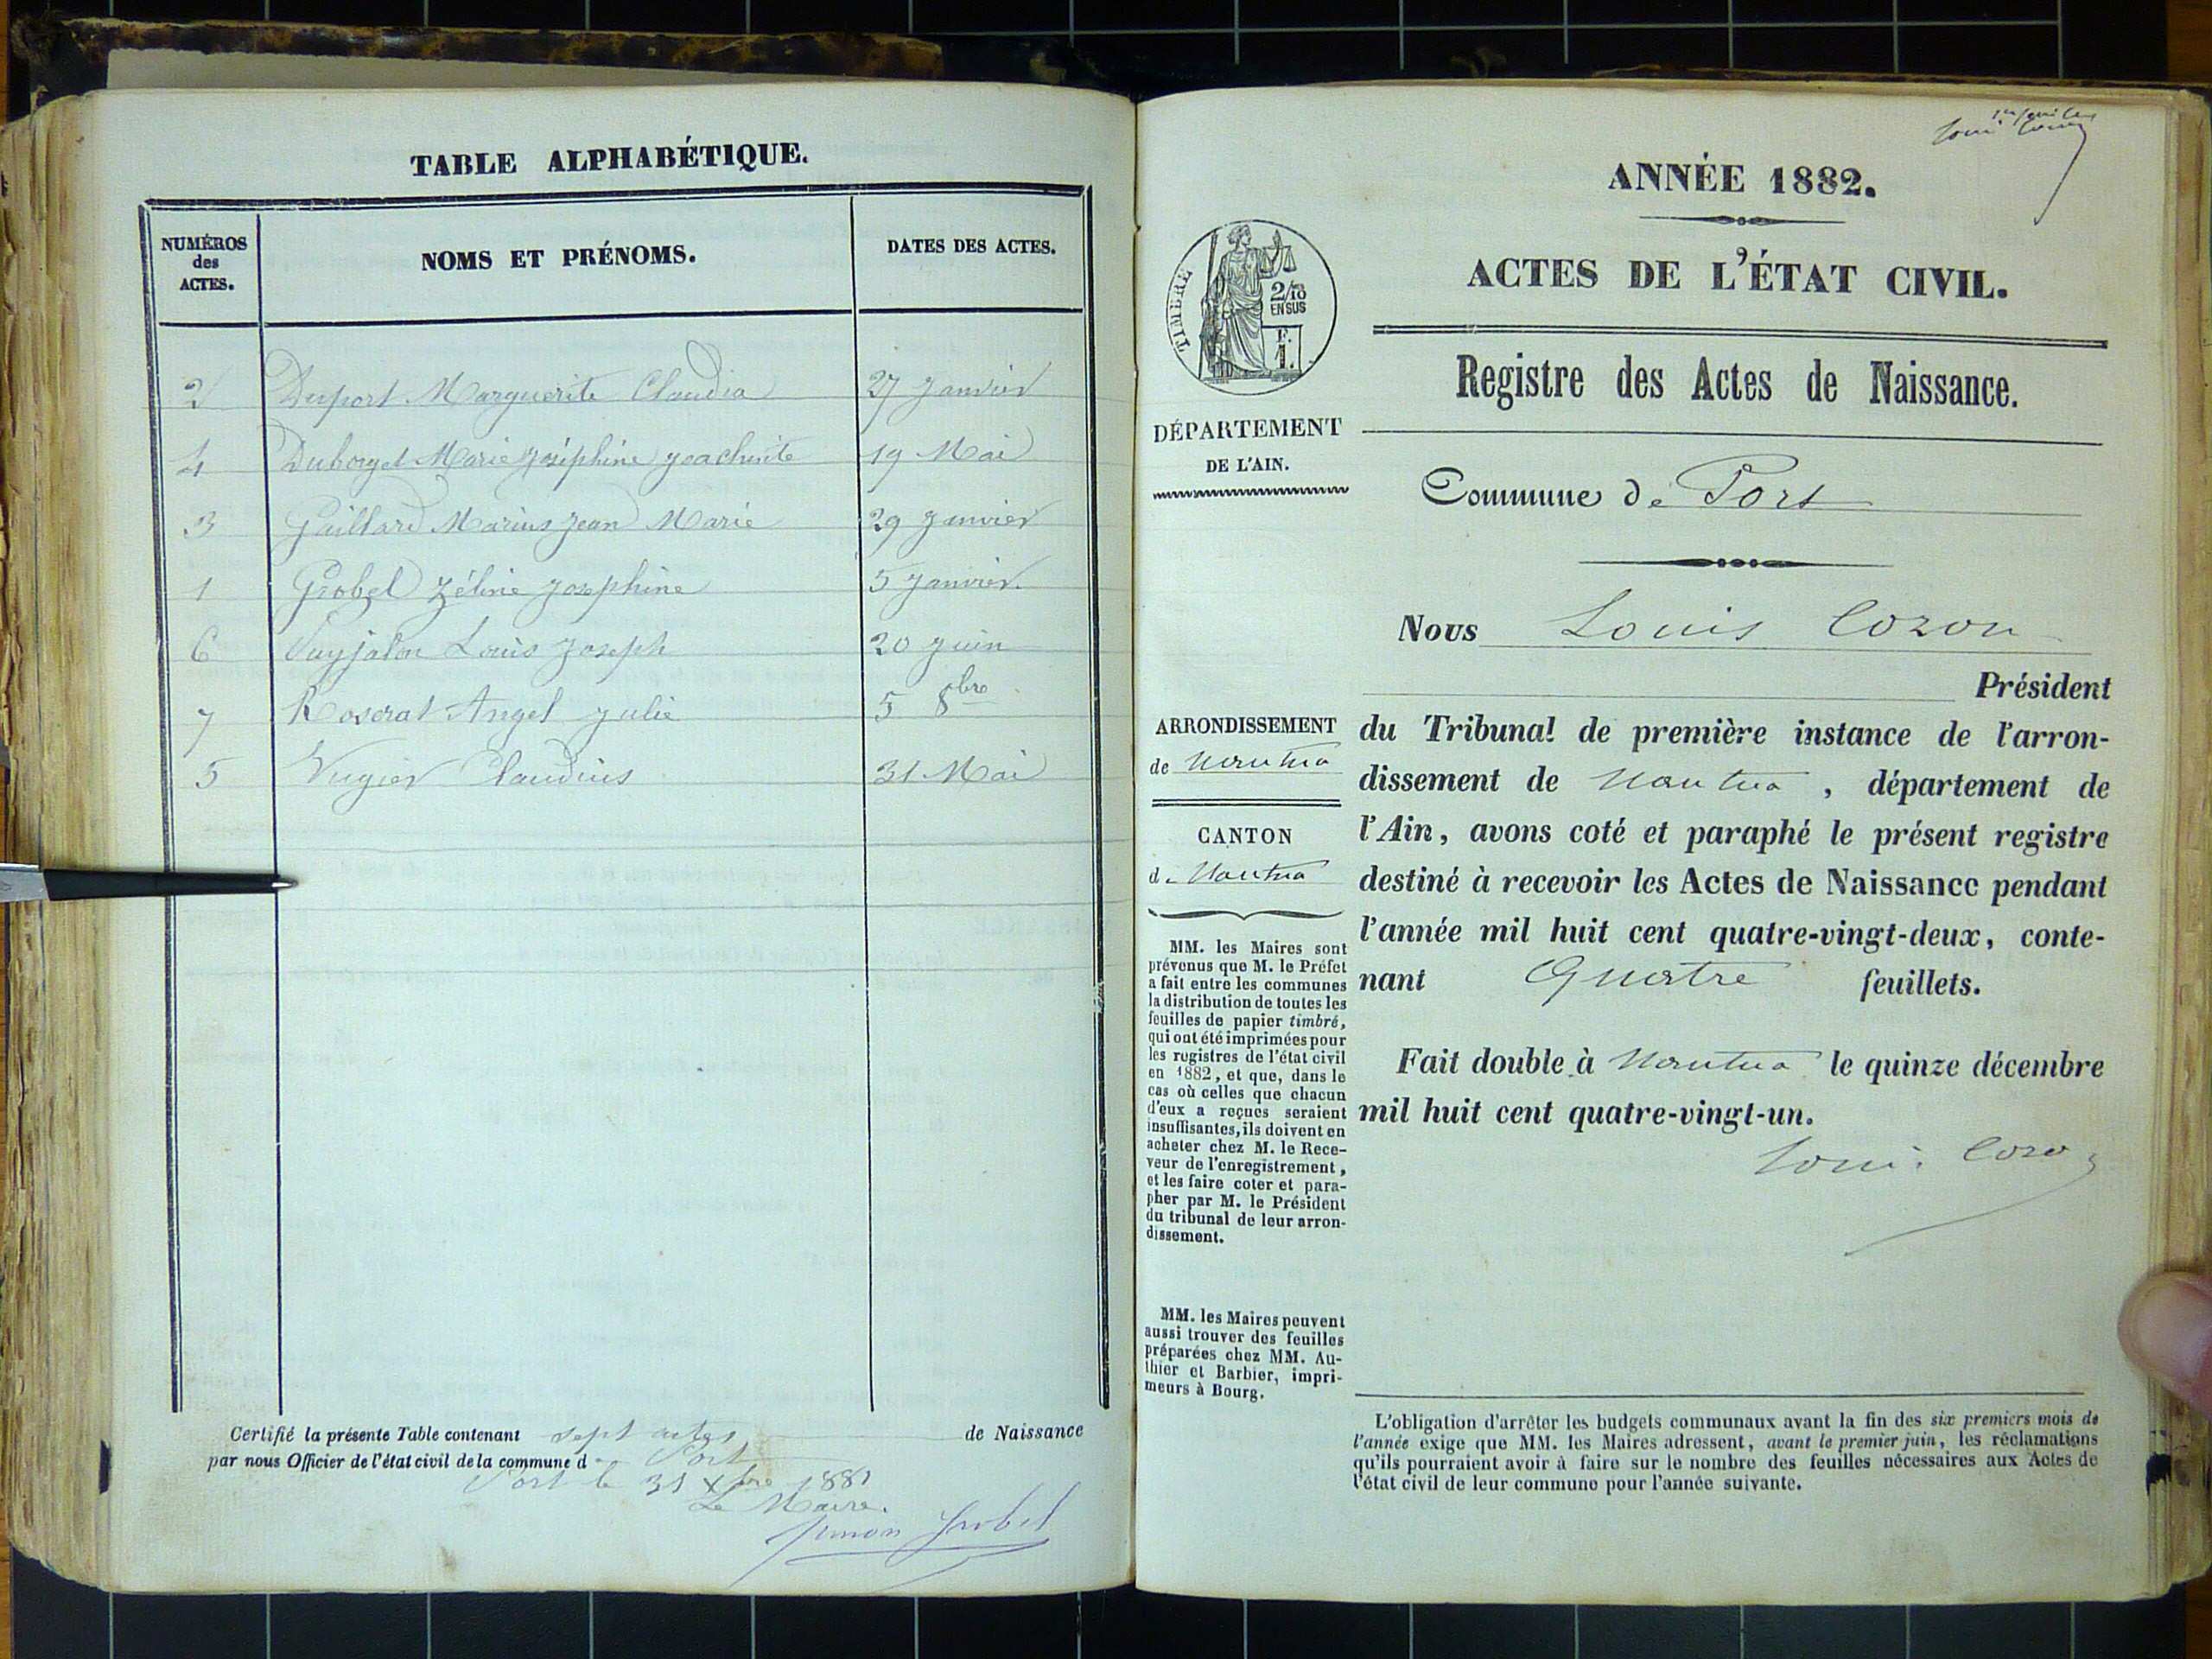 TABLE ALPHABÉTIQUE.
NUMÉROS
des
ACTES.
NOMS ET PRÉNOMS.
DATES DES ACTES.
2 Duport Marguerite Claudia 27 Janvier
4 Duborget Marie Joséphine 19 Mai
3 Gaillard Marius Jean Marie 29 Janvier
1 Grobel Zélinie Joséphine 5 Janvier
6 Puyjalon Louis Joseph 20 Juin
7 Roserat Angel Julie 5 8bre
5 Vugier Claudius 31 Mai
Certifié la présente Table contenant sept actes de Naissance
par nous Officier de l'état civil de la commune d Port
Port le 31 Xbre 1881
Le Maire.
Grobel
1er feuillet
Louis Cozon
ANNÉE 1882.
ACTES DE L'ÉTAT CIVIL.
Registre des Actes de Naissance.
TIMBRE
2/10
EN SUS
F.
1.
DÉPARTEMENT
DE L'AIN.
Commune de Port
Nous Louis Cozon
Président
du Tribunal de première instance de l'arron-
dissement de Nantua, département de
l'Ain, avons coté et paraphé le présent registre
destiné à recevoir les Actes de Naissance pendant
l'année mil huit cent quatre-vingt-deux, conte-
nant Quatre feuillets.
Fait double à Nantua le quinze décembre
mil huit cent quatre-vingt-un.
Louis Cozon
ARRONDISSEMENT
de Nantua
CANTON
de Nantua
MM. les Maires sont
prévenus que M. le Préfet
a fait entre les communes
la distribution de toutes les
feuilles de papier timbré,
qui ont été imprimées pour
les registres de l'état civil
en 1882, et que, dans le
cas où celles que chacun
d'eux a reçues seraient
insuffisantes, ils doivent en
acheter chez M. le Rece-
veur de l'enregistrement,
et les faire coter et para-
pher par M. le Président
du tribunal de leur arron-
dissement.
MM. les Maires peuvent
aussi trouver des feuilles
préparées chez MM. Au-
thier et Barbier, impri-
meurs à Bourg.
L'obligation d'arrêter les budgets communaux avant la fin des six premiers mois de
l'année exige que MM. les Maires adressent, avant le premier juin, les réclamations
qu'ils pourraient avoir à faire sur le nombre des feuilles nécessaires aux Actes de
l'état civil de leur commune pour l'année suivante.